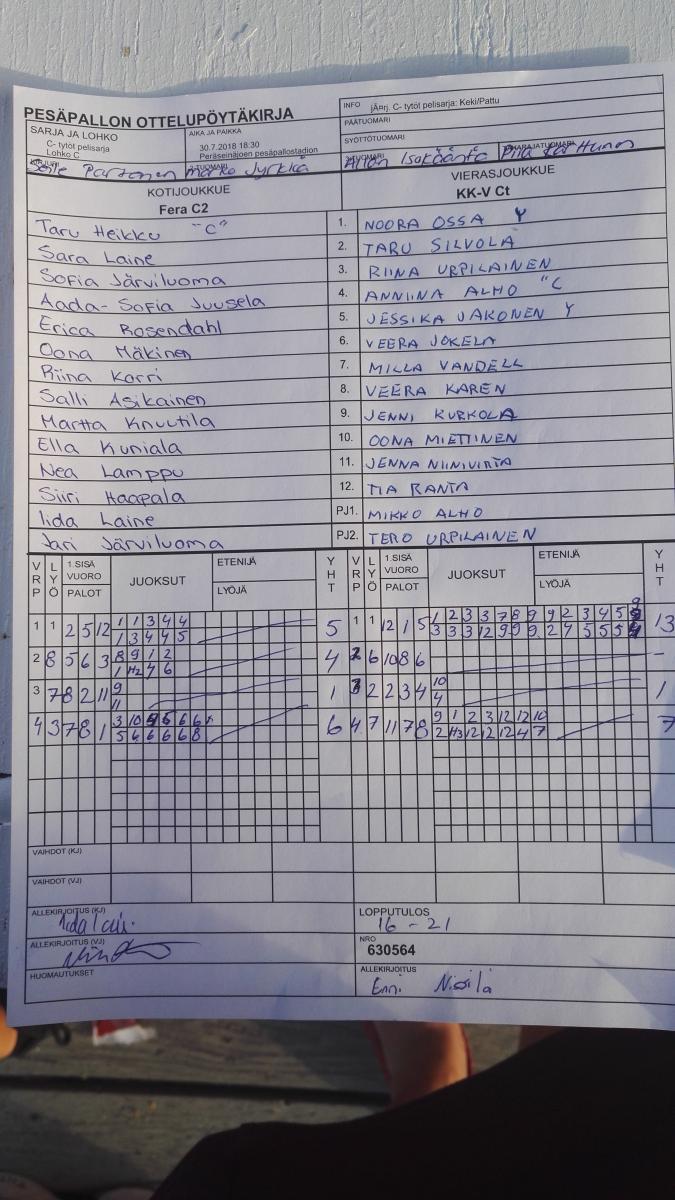 PESÄPALLON OTTELUPÖYTÄKIRJA
INFO jÃ¤rj. C- tytöt pelisarja: Keki/Pattu
PÄÄTUOMARI
SYÖTTÖTUOMARI
SARJA JA LOHKO
C- tytöt pelisarja
Lohko C
AIKA JA PAIKKA
30.7.2018 18:30
Peräseinäjoen pesäpallostadion
KOTIJOUKKUE
Fera C2
VIERASJOUKKUE
KK-V Ct
Taru Heikku "C" 1. NOORA OSSA Y
Sara Laine 2. TARU SILVOLA
Sofia Järviluoma 3. RIINA URPILAINEN
Aada-Sofia Juusela 4. ANNIINA ALHO "C
Erica Rosendahl 5. JESSIKA JAKONEN Y
Oona Mäkinen 6. VEERA JOKELA
Riina Korri 7. MILLA VANDELL
Salli Asikainen 8. VEERA KAREN
Martta Knuutila 9. JENNI KURKOLA
Ella Kuniala 10. OONA MIETTINEN
Nea Lamppu 11. JENNA NIINIVIRTA
Siiri Haapala 12. TIA RANTA
Iida Laine PJ1. MIKKO ALHO
Jari Järviluoma PJ2. TERO URPILAINEN
VRP LYÖ 1.SISÄ VUORO PALOT JUOKSUT ETENIJÄ LYÖJÄ YHT VRP LYÖ 1.SISÄ VUORO PALOT JUOKSUT ETENIJÄ LYÖJÄ YHT
1 1 2 5 12 1 1 3 4 4 5 1 1 12 1 5 1 2 3 3 7 8 9 9 2 3 4 5 13
1 3 4 4 5 3 3 3 12 9 9 9 2 4 5 5 5
2 8 5 6 3 8 9 1 2 4 2 6 10 8 6 -
1 H2 4 6
3 7 8 2 11 9 1 3 2 2 3 4 10 1
11 4
4 3 7 8 1 3 10 5 6 6 6 4 7 11 7 8 9 1 2 3 12 12 10 7
5 6 6 6 6 8 2 H3 12 12 12 4 7
VAIHDOT (KJ)
VAIHDOT (VJ)
ALLEKIRJOITUS (KJ)
LOPPUTULOS
16 - 21
ALLEKIRJOITUS (VJ)
NRO
630564
HUOMAUTUKSET
ALLEKIRJOITUS
Enni Nissilä